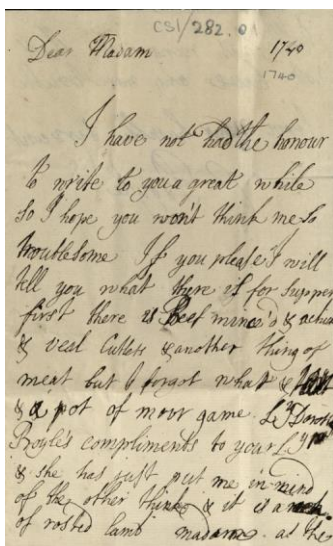 CS1/282.01
Dear Madam 1740
1740
I have not had the honour
to write to you a great while
So I hope you won't think me So
troublesome If you please I will
tell you what there is for Supper
first there is Beef mince'd &
& veal Cutlets & another thing of
meat but I forgot what &
& a pot of moor game. Ly Dorothy
Boyle's compliments to your Lyp
& she has just put me in mind
of the other think & it is a
of rosted lamb madam as the